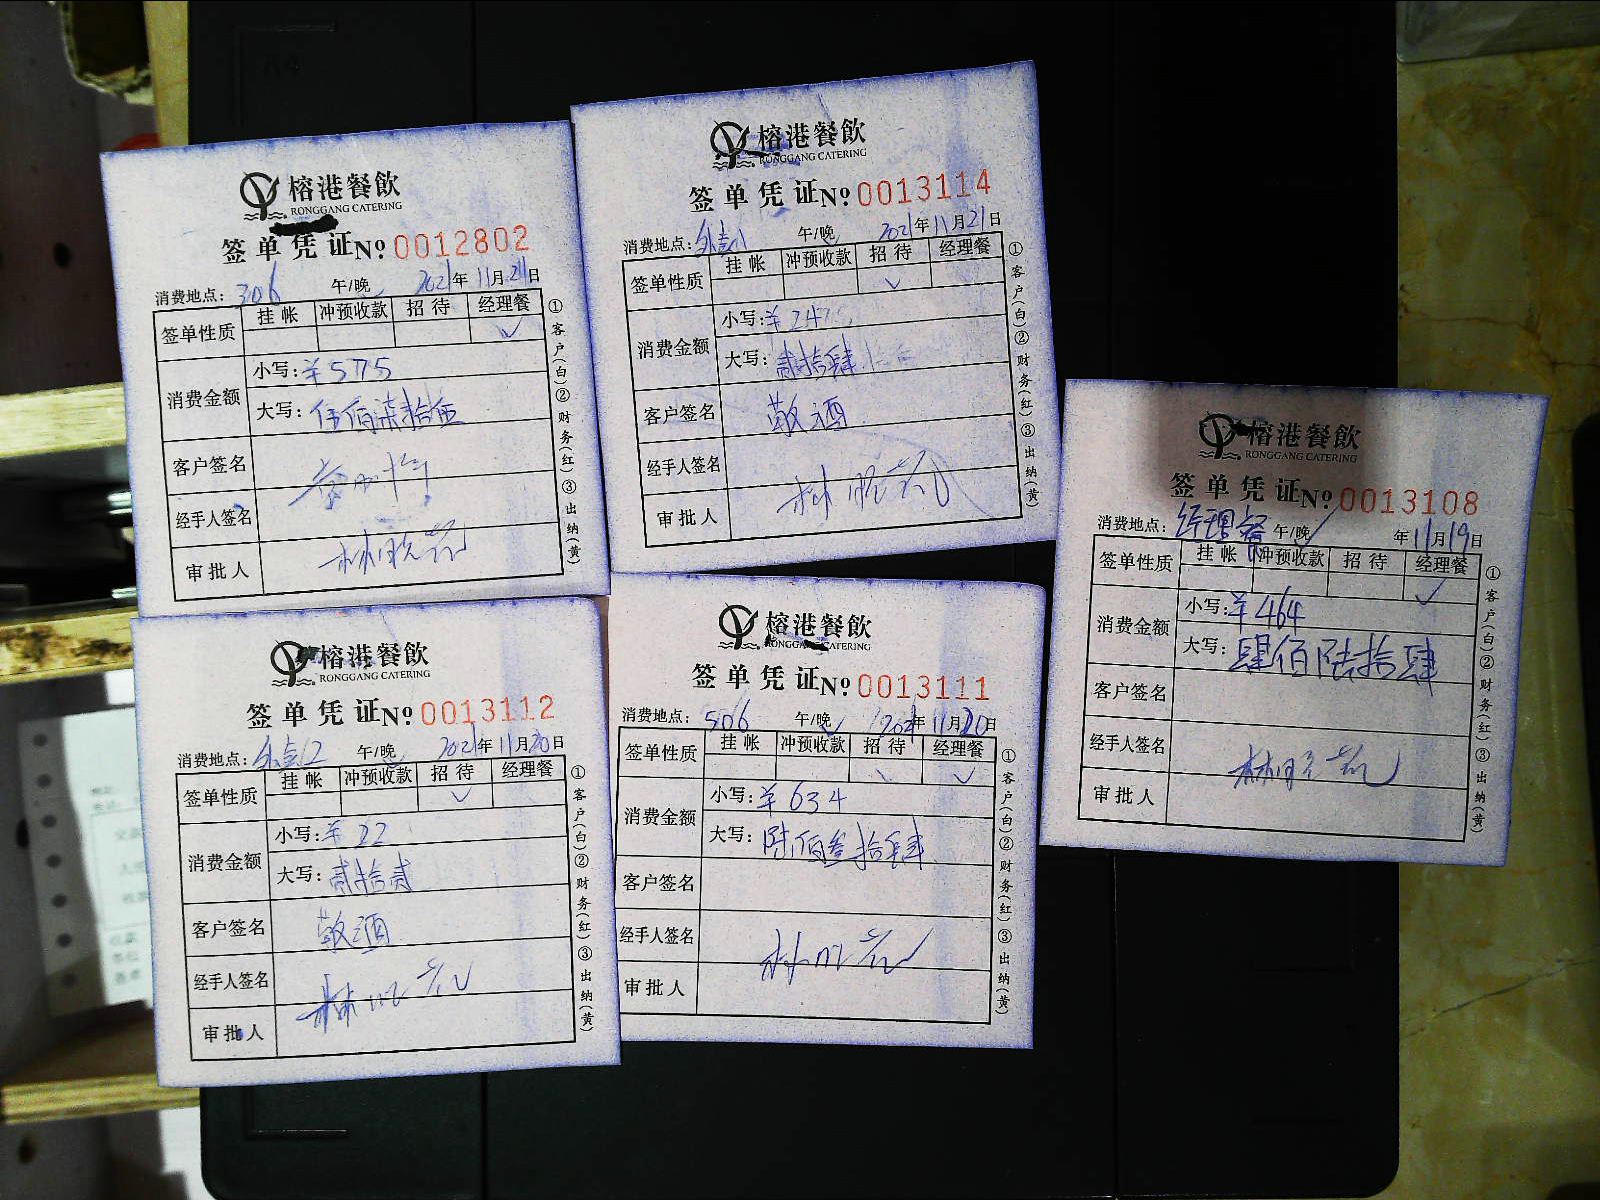 榕港餐飲
RONGGANG CATERING
签单凭证№ 0012802
消费地点: 306 午/晚 2021年11月21日
签单性质 挂帐 冲预收款 招待 经理餐
✓
消费金额 小写: ¥575
大写: 伍佰柒拾伍
客户签名
经手人签名
审批人
①客户(白)②财务(红)③出纳(黄)
榕港餐飲
RONGGANG CATERING
签单凭证№ 0013114
消费地点: 午/晚 2021年11月21日
签单性质 挂帐 冲预收款 招待 经理餐
✓
消费金额 小写: ¥24
大写: 贰拾肆
客户签名 敬酒
经手人签名
审批人
①客户(白)②财务(红)③出纳(黄)
榕港餐飲
RONGGANG CATERING
签单凭证№ 0013108
消费地点: 经理餐 午/晚 年11月19日
签单性质 挂帐 冲预收款 招待 经理餐
✓
消费金额 小写: ¥464
大写: 肆佰陆拾肆
客户签名
经手人签名
审批人
①客户(白)②财务(红)③出纳(黄)
榕港餐飲
RONGGANG CATERING
签单凭证№ 0013112
消费地点: 午/晚 2021年11月20日
签单性质 挂帐 冲预收款 招待 经理餐
✓
消费金额 小写: ¥22
大写: 贰拾贰
客户签名 敬酒
经手人签名
审批人
①客户(白)②财务(红)③出纳(黄)
榕港餐飲
RONGGANG CATERING
签单凭证№ 0013111
消费地点: 506 午/晚 2021年11月20日
签单性质 挂帐 冲预收款 招待 经理餐
✓
消费金额 小写: ¥634
大写: 陆佰叁拾肆
客户签名
经手人签名
审批人
①客户(白)②财务(红)③出纳(黄)